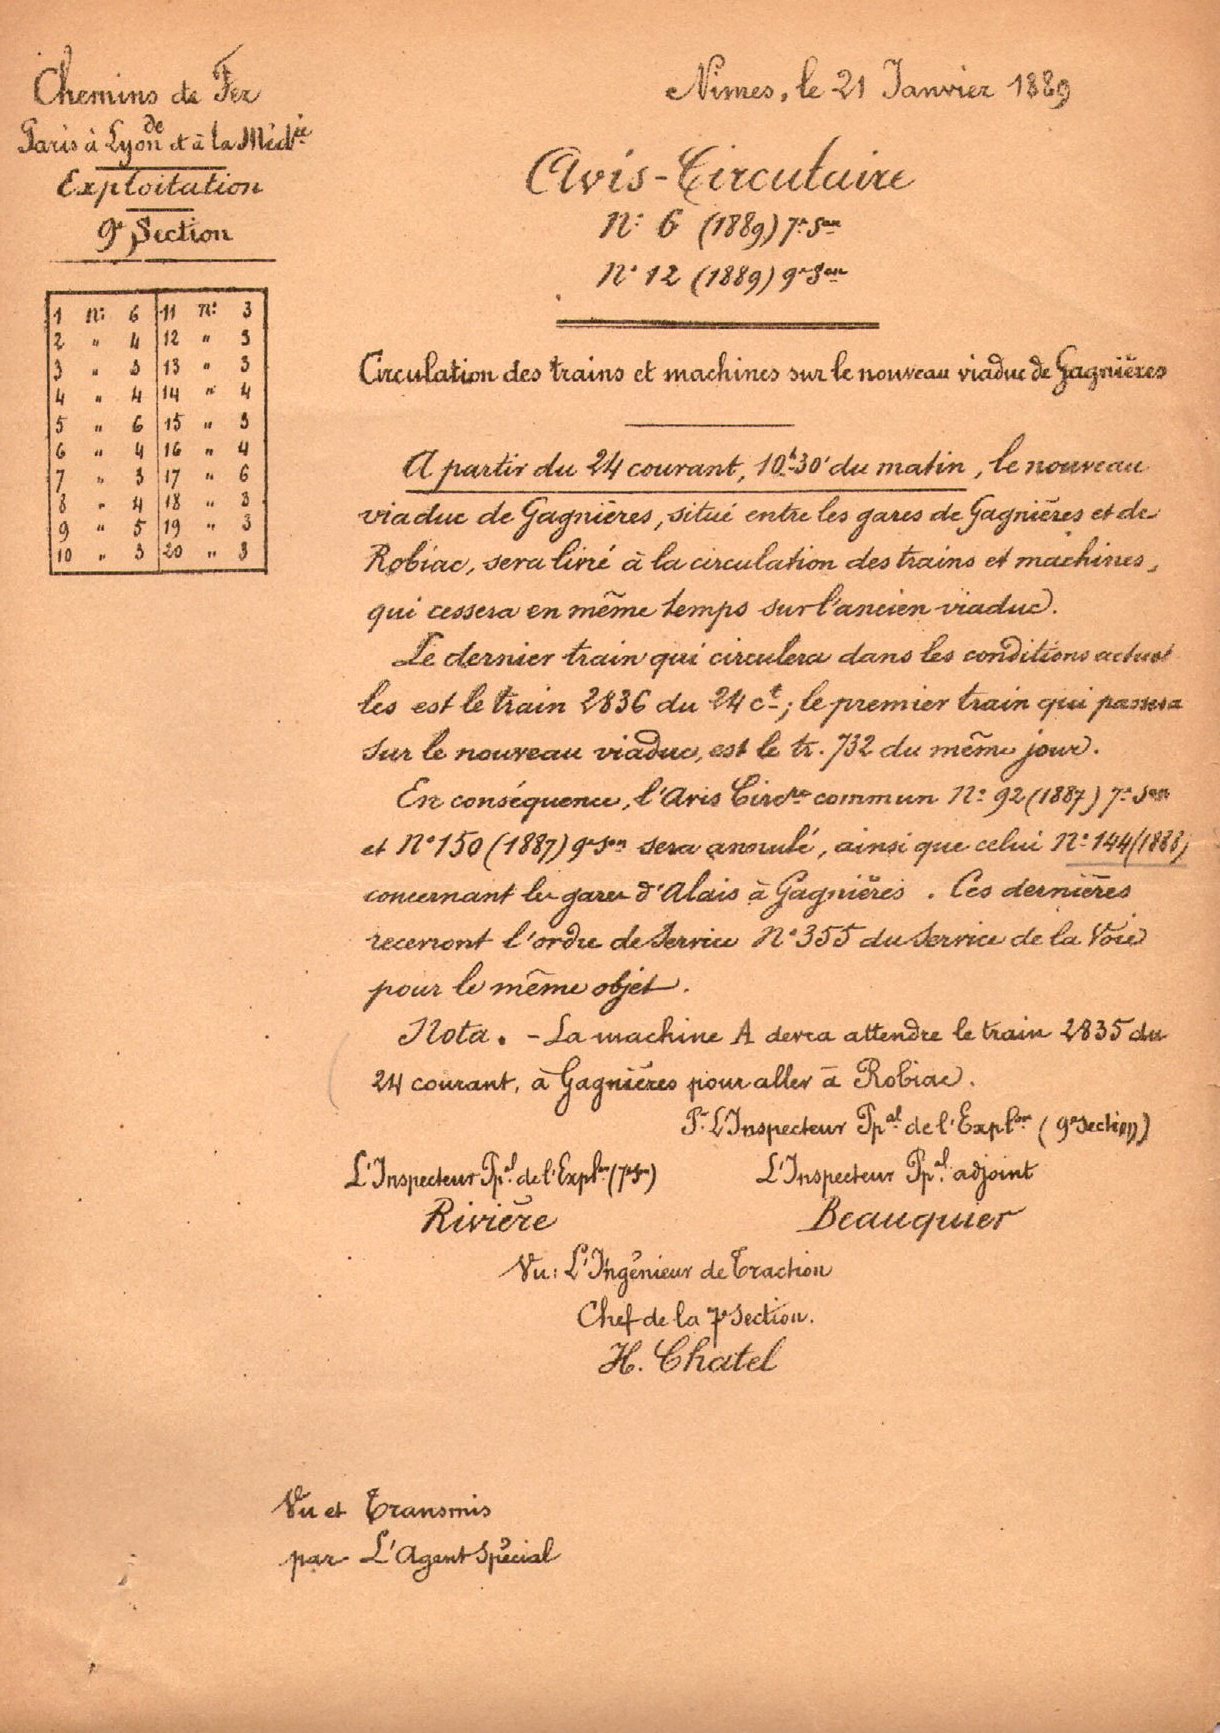 Chemins de Fer
Paris à Lyon de et à la Médie
Exploitation
9e Section
1 No 6 11 No 3
2 " 4 12 " 3
3 " 3 13 " 3
4 " 4 14 " 4
5 " 6 15 " 3
6 " 4 16 " 4
7 " 3 17 " 6
8 " 4 18 " 3
9 " 5 19 " 3
10 " 3 20 " 3
Nimes, le 21 Janvier 1889
Avis-Circulaire
No 6 (1889) 7e Son
No 12 (1889) 9e Son
Circulation des trains et machines sur le nouveau viaduc de Gagnières
A partir du 24 courant, 10h30' du matin, le nouveau
viaduc de Gagnières, situé entre les gares de Gagnières et de
Robiac, sera livré à la circulation des trains et machines,
qui cessera en même temps sur l'ancien viaduc.
Le dernier train qui circulera dans les conditions actuel
les est le train 2836 du 24 ct; le premier train qui passera
sur le nouveau viaduc, est le tr. 732 du même jour.
En conséquence, l'Avis Circre commun No 92 (1887) 7e Son
et No 150 (1887) 9e Son sera annulé, ainsi que celui No 144 (1888)
concernant les gares d'Alais à Gagnières. Ces dernières
recevront l'ordre de Service No 355 du Service de la Voie
pour le même objet.
Nota. - La machine A devra attendre le train 2835 du
24 courant, à Gagnières pour aller à Robiac.
Pr L'Inspecteur Ppal de l'Explon (9e Section)
L'Inspecteur Ppal de l'Explon (7e Son)
L'Inspecteur Ppal adjoint
Rivière
Beauquier
Vu: L'Ingénieur de Traction
Chef de la 7e Section.
H. Chatel
Vu et Transmis
par L'Agent Spécial